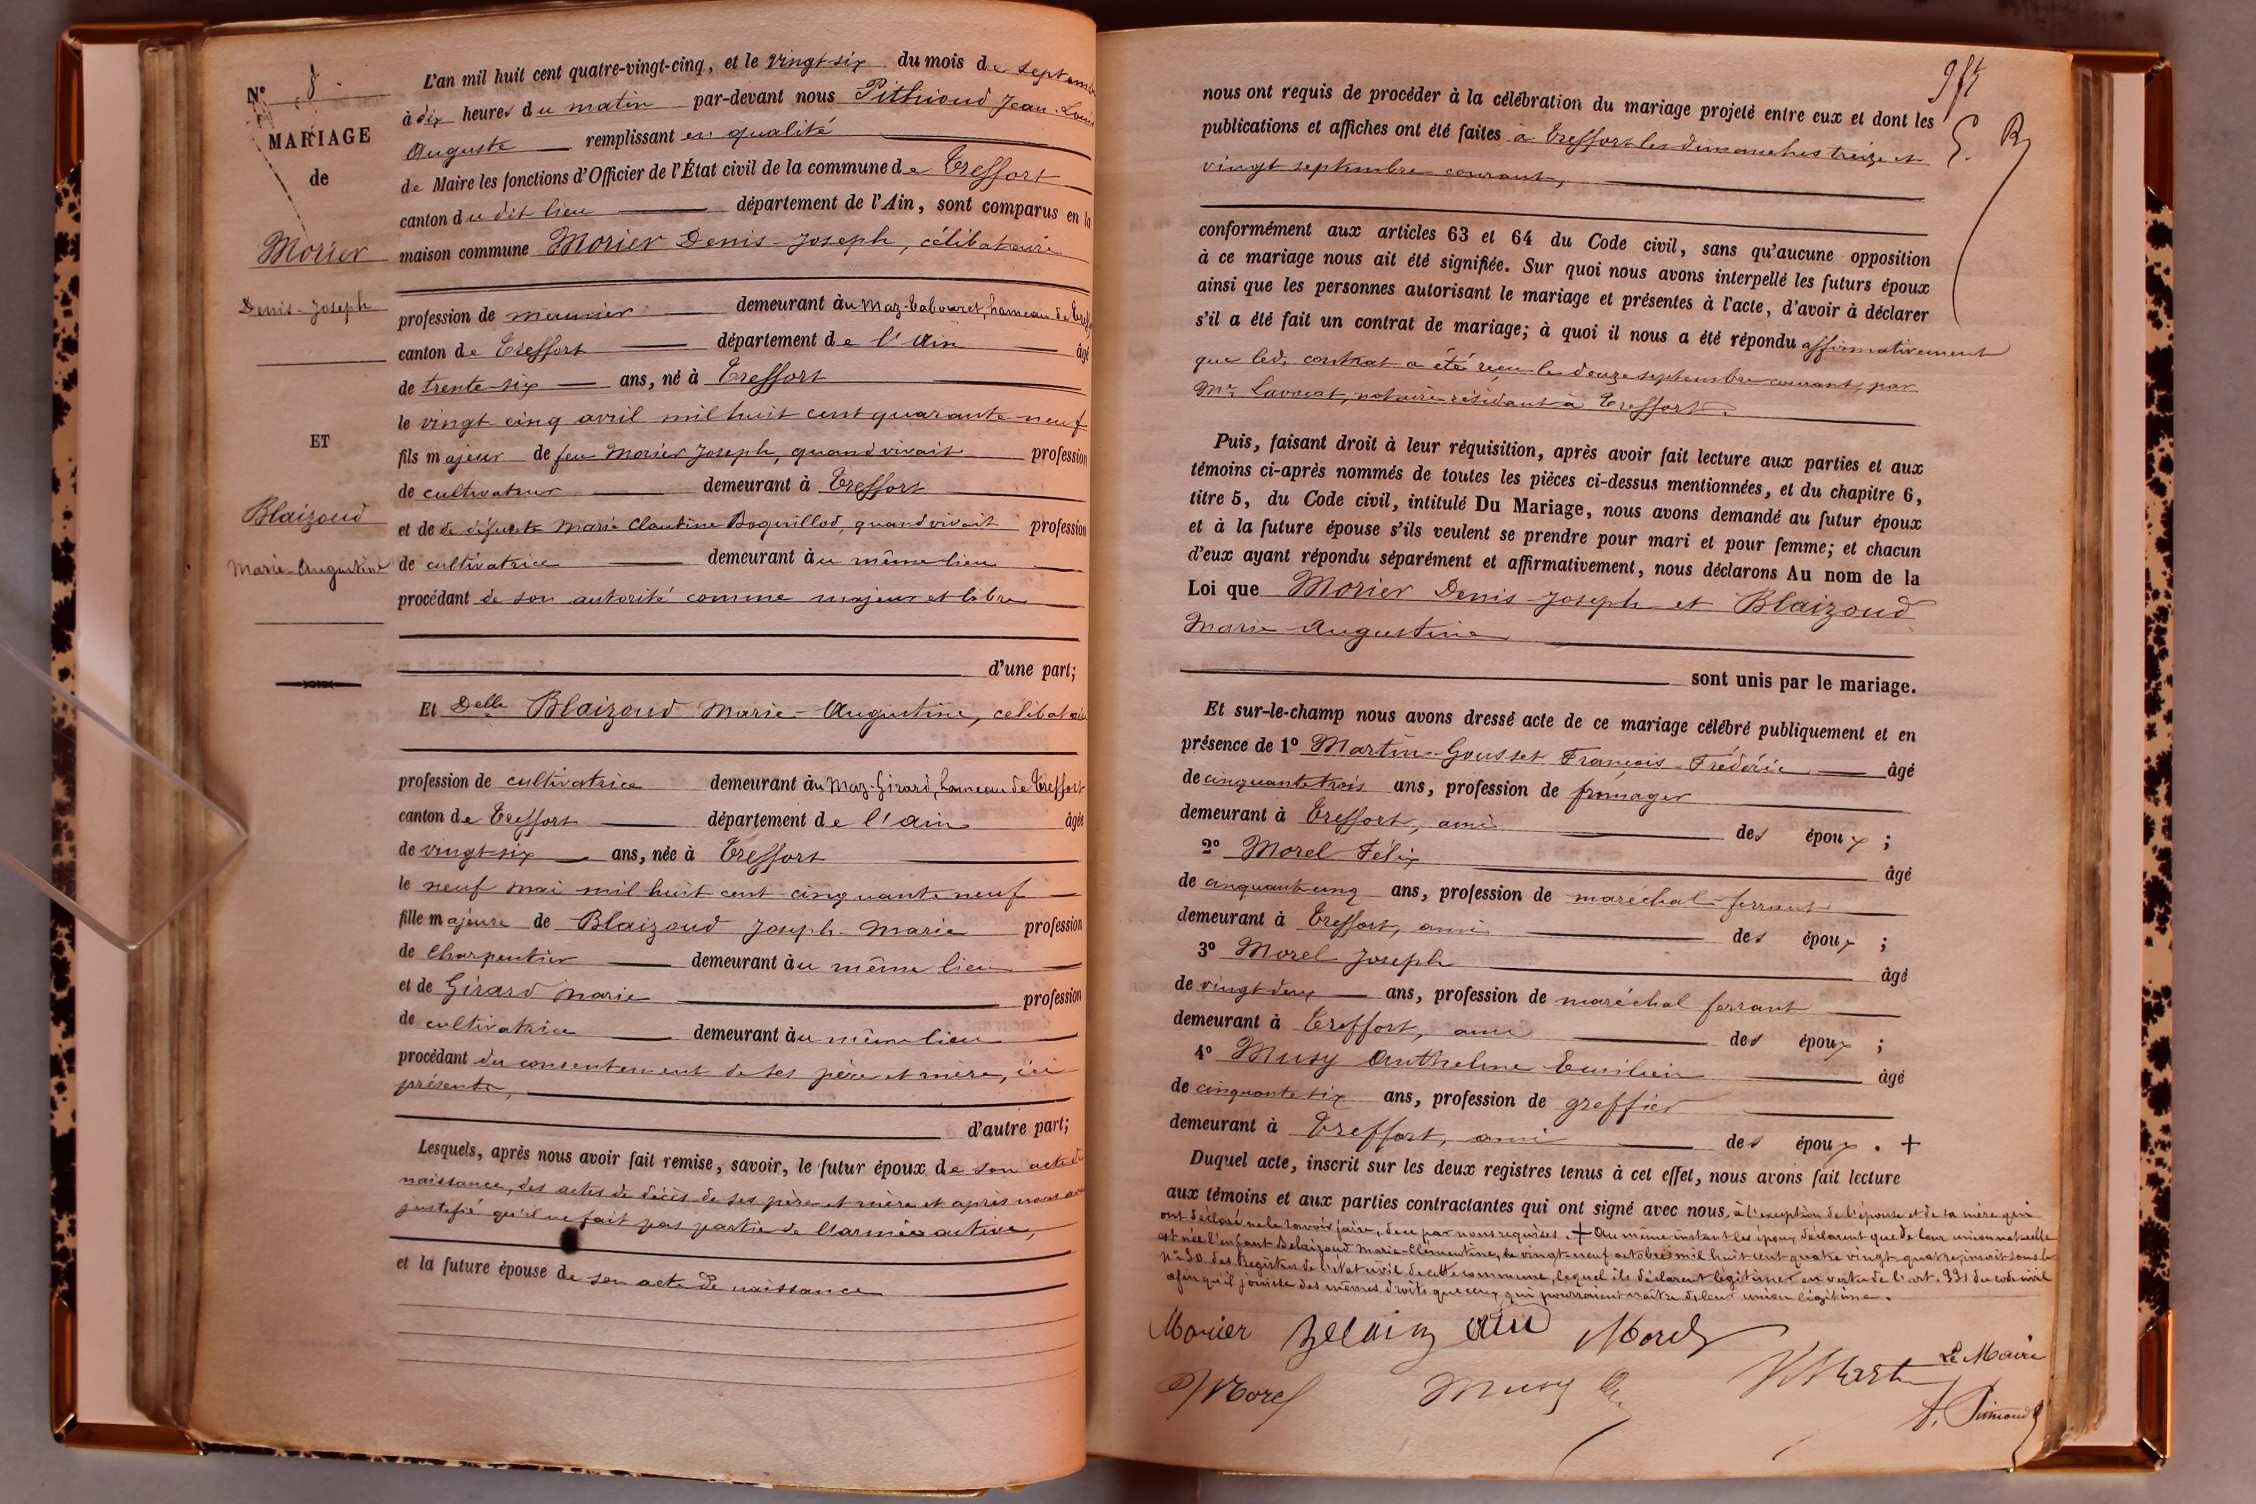 Nº 8
MARIAGE
de
Morier
Denis-Joseph
ET
Blaizoud
Marie-Augustine
L'an mil huit cent quatre-vingt-cinq, et le vingt-six du mois de septembre
à dix heures du matin par-devant nous Pithioud Jean-Louis
Auguste remplissant en qualité
de Maire les fonctions d'Officier de l'État civil de la commune de Treffort
canton du dit lieu département de l'Ain, sont comparus en la
maison commune Morier Denis-Joseph, célibataire
profession de meunier demeurant àu Maz-Tabouret, hameau de Treffort
canton de Treffort département de l'Ain âgé
de trente-six ans, né à Treffort
le vingt cinq avril mil huit cent quarante-neuf
fils majeur de feu Morier Joseph, quand vivait profession
de cultivateur demeurant à Treffort
et de de défunte Marie Claudine Boquillod, quand vivait profession
de cultivatrice demeurant àu même lieu
procédant de son autorité comme majeur et libre
d'une part;
Et Delle Blaizoud Marie-Augustine, célibataire
profession de cultivatrice demeurant àu Maz-Girard, hameau de Treffort
canton de Treffort département de l'Ain âgée
de vingt-six ans, née à Treffort
le neuf mai mil huit cent cinquante neuf
fille majeure de Blaizoud Joseph-Marie profession
de charpentier demeurant àu même lieu
et de Girard Marie profession
de cultivatrice demeurant àu même lieu
procédant du consentement de ses père et mère, ici
présents,
d'autre part;
Lesquels, après nous avoir fait remise, savoir, le futur époux de son acte de
naissance, des actes de décès de ses père et mère et après nous avoir
justifié qu'il ne fait pas partie de l'armée active,
et la future épouse de son acte de naissance
nous ont requis de procéder à la célébration du mariage projeté entre eux et dont les
publications et affiches ont été faites à Treffort les dimanches treize et
vingt septembre courant,
conformément aux articles 63 et 64 du Code civil, sans qu'aucune opposition
à ce mariage nous ait été signifiée. Sur quoi nous avons interpellé les futurs époux
ainsi que les personnes autorisant le mariage et présentes à l'acte, d'avoir à déclarer
s'il a été fait un contrat de mariage; à quoi il nous a été répondu affirmativement
que led. contrat a été reçu le douze septembre courant, par
Me Lavocat, notaire résidant à Treffort.
Puis, faisant droit à leur réquisition, après avoir fait lecture aux parties et aux
témoins ci-après nommés de toutes les pièces ci-dessus mentionnées, et du chapitre 6,
titre 5, du Code civil, intitulé Du Mariage, nous avons demandé au futur époux
et à la future épouse s'ils veulent se prendre pour mari et pour femme; et chacun
d'eux ayant répondu séparément et affirmativement, nous déclarons Au nom de la
Loi que Morier Denis-Joseph et Blaizoud
Marie-Augustine
sont unis par le mariage.
Et sur-le-champ nous avons dressé acte de ce mariage célébré publiquement et en
présence de 1º Martin-Gousset François-Frédéric âgé
de cinquante trois ans, profession de fromager
demeurant à Treffort, ami des époux ;
2º Morel Félix âgé
de cinquante cinq ans, profession de maréchal-ferrant
demeurant à Treffort, ami des époux ;
3º Morel Joseph âgé
de vingt deux ans, profession de maréchal ferrant
demeurant à Treffort, ami des époux ;
4º Musy Anthelme Emilien âgé
de cinquante six ans, profession de greffier
demeurant à Treffort, ami des époux . +
Duquel acte, inscrit sur les deux registres tenus à cet effet, nous avons fait lecture
aux témoins et aux parties contractantes qui ont signé avec nous, à l'exception de l'épouse et de sa mère qui
ont déclaré ne le savoir faire, de ce par nous requises. + Au même instant les époux déclarent que de leur union naturelle
est née l'enfant Belaizoud Marie-Clémentine, le vingt-neuf octobre mil huit cent quatre vingt-quatre, inscrit sous le
nº 30 des Registres de l'état civil de cette commune, lequel ils déclarent légitimer en vertu de l'art. 331 du code civil
afin qu'il jouisse des mêmes droits que ceux qui pourraient naître de leur union légitime.
Morier Morel
Le Maire
Morel Musy